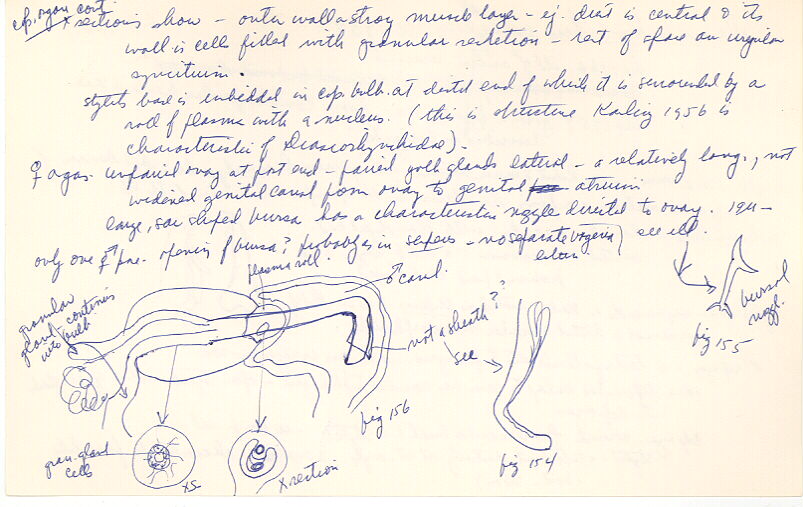 cop. organ cont.
x sections show - outer wall a strong muscle layer - ej. duct is central & its
wall is cells filled with granular secretion - rest of space an irregular
syncitium.
stylets base is imbedded in cop. bulb. at distal end of which it is surrounded by a
roll of plasma with a nucleus. (this is structure Karling 1956 is
characteristic of
♀ organ. unpaired ovary at post end - paired yolk glands lateral - a relatively long, not
widened genital canal from ovary to genital atrium
large, sac shaped bursa has a characteristic nozzle directed to ovary.
only one ♀ pore. opening of bursa? probably is in - no separate vagina) see ill.
plasma roll.
♂ canal.
granular
gland continues
into bulb
not a sheath??
see
bursal
nozzle.
fig 155
fig 156
fig 154
gran. gland
cells
XS
X section